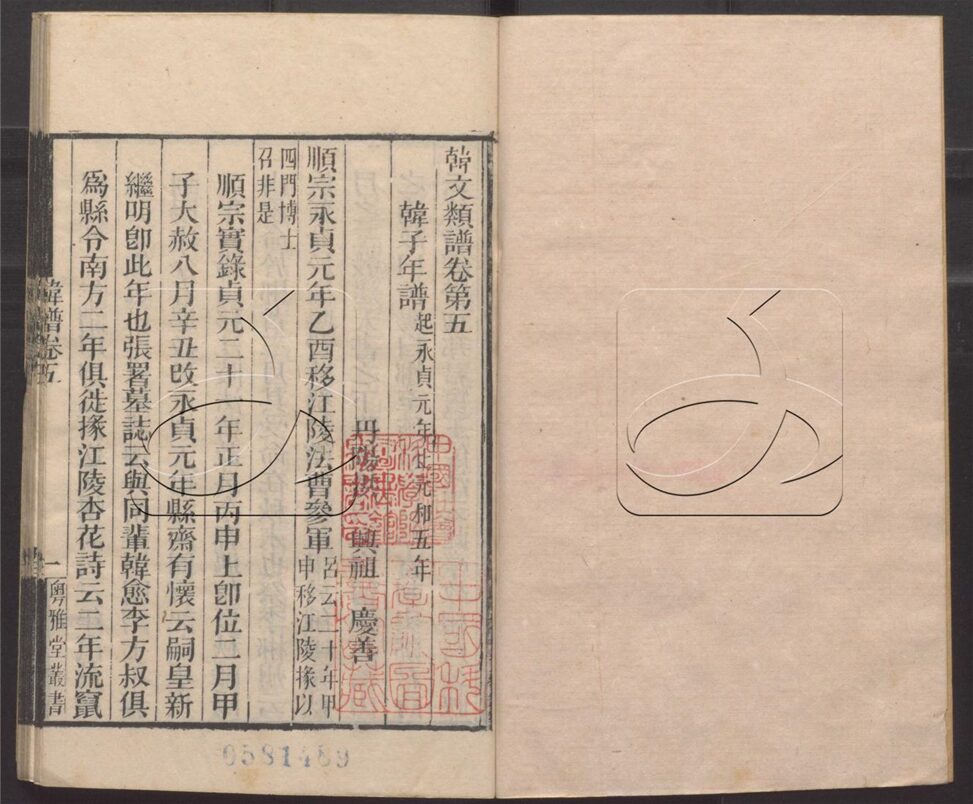 韓文類譜卷第五
韓子年譜起永貞元年止元和五年
丹陽洪興祖慶善
順宗永貞元年乙酉移江陵法曹參軍呂云二十年甲
申移江陵掾以
四門博士
召非是
順宗實錄貞元二十一年正月丙申上卽位二月甲
子大赦八月辛丑改永貞元年縣齋有懷云嗣皇新
繼明卽此年也張署墓誌云與同輩韓愈李方叔俱
爲縣令南方二年俱徙掾江陵杏花詩云二年流竄
韓譜卷五
一
粵雅堂叢書
0581469